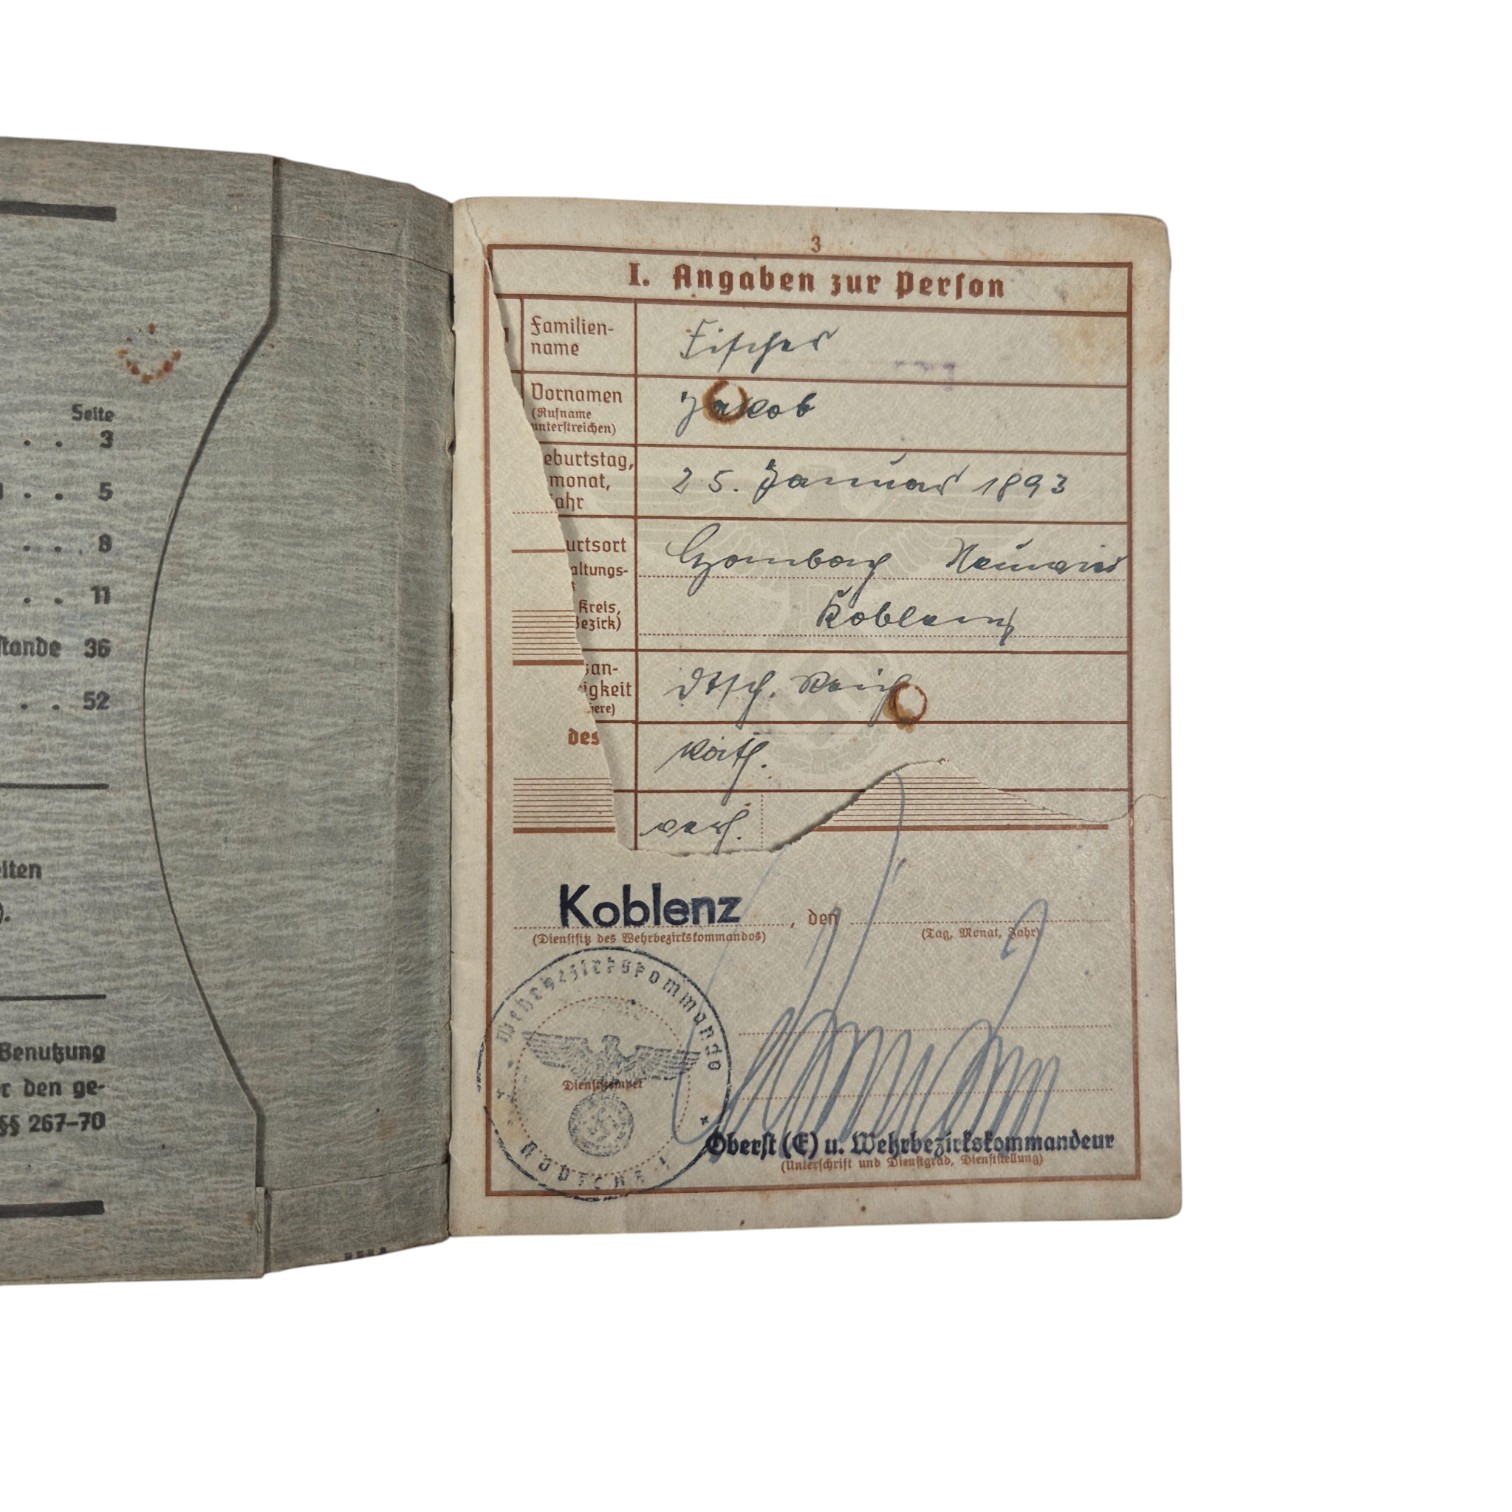 Seite
. . 3
. . 5
. . . 8
. . 11
stände 36
. . 52
eiten
).
Benutzung
r den ge-
§§ 267–70
3
I. Angaben zur Person
Familien-
name
Fischer
Vornamen
(Rufname
unterstreichen)
Jakob
eburtstag,
monat,
jahr
25. Januar 1893
urtsort
altungs-
Neuwied
Kreis,
Bezirk)
Koblenz
san-
igkeit
ere)
Dtsch. Reich
des
kath.
verh.
Koblenz, den
(Dienstsitz des Wehrbezirkskommandos)
(Tag, Monat, Jahr)
Wehrbezirkskommando
Dienststempel
Oberst (E) u. Wehrbezirkskommandeur
(Unterschrift und Dienstgrad, Dienststellung)